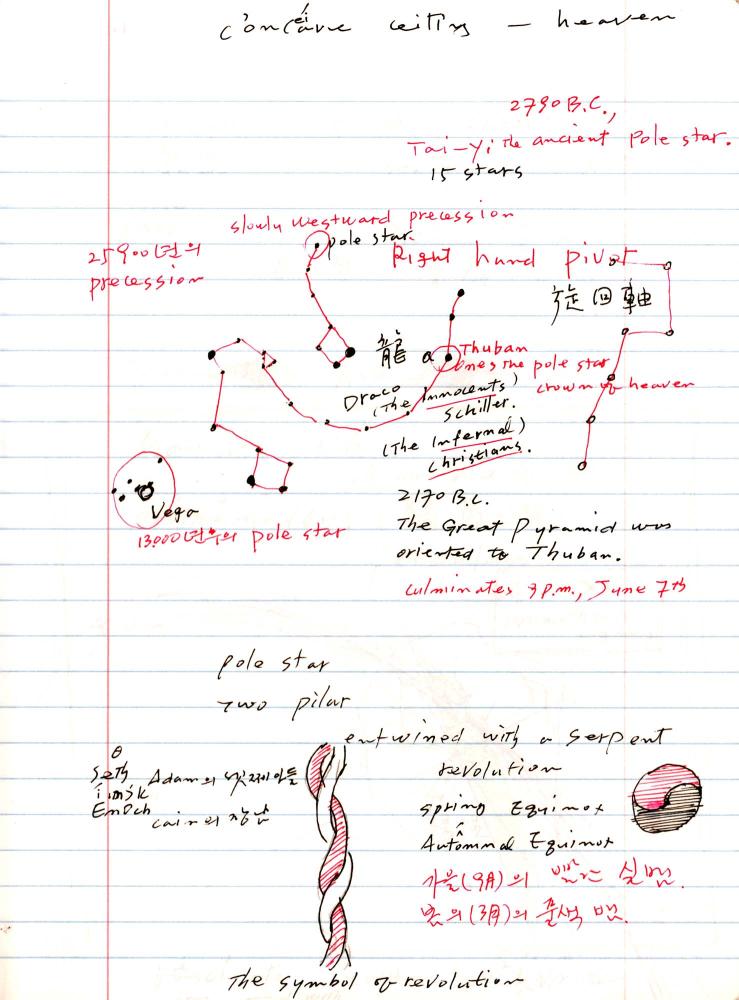 concave ceiling — heaven
2790 B.C.,
Tai-yi the ancient pole star.
15 stars
slowly westward precession
pole star.
25900년의
precession
Right hand pivot
旋回軸
龍 α Thuban
ones the pole star
crown of heaven
Draco
(The Innocents)
Schiller.
(The Infernal)
Christians.
2170 B.C.
The Great Pyramid was
oriented to Thuban.
Vega
13000년후의 pole star
culminates 9 p.m., June 7th
pole star
two pilar
entwined with a serpent
revolution
Seth Adam의 셋째아들
Enoch cain의 장남
spring Equinox
Autômnal Equinox
가을(9月)의 빨간 실뱀.
봄의(3月)의 풀색 뱀.
The symbol of revolution